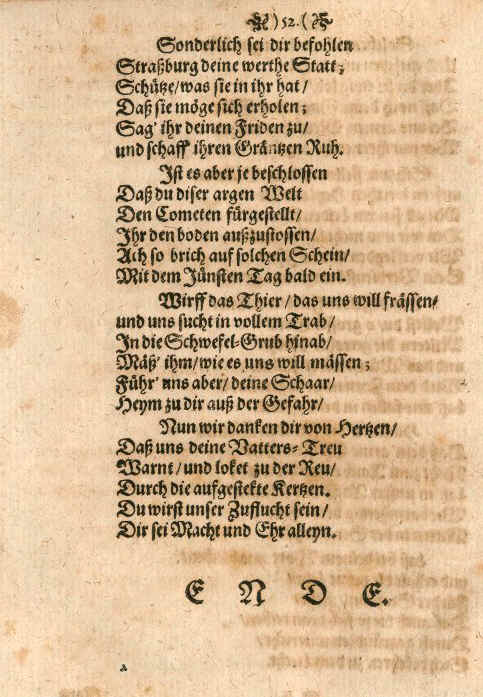 ) 52. (
Sonderlich sei dir befohlen
Straßburg deine werthe Statt;
Schütze/was sie in ihr hat/
Daß sie möge sich erholen;
Sag' ihr deinen Friden zu/
und schaff ihren Gräntzen Ruh.
Ist es aber je beschlossen
Daß du diser argen Welt
Den Cometen fürgestellt/
Ihr den boden außzustossen/
Ach so brich auf solchen Schein/
Mit dem Jünsten Tag bald ein.
Wirff das Thier/das uns will frässen/
und uns sucht in vollem Trab/
In die Schwefel-Grub hinab/
Mäß' ihm/wie es uns will mässen;
Führ' uns aber/deine Schaar/
Heym zu dir auß der Gefahr/
Nun wir danken dir von Hertzen/
Daß uns deine Vatters-Treu
Warnt/und loket zu der Reu/
Durch die aufgestekte Kertzen.
Du wirst unser Zuflucht sein/
Dir sei Macht und Ehr alleyn.
ENDE.